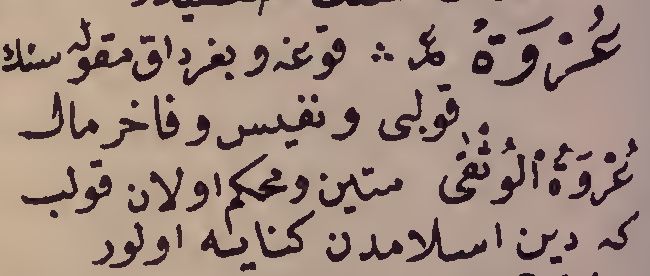 عُرْوَةُ عر ∴ قوغه و بغرداق مقوله سنك
قولبى و نفيس و فاخر مال
عُرْوَةُ الْوُثْقٰى متين و محكم اولان قولب
كه دين اسلامدن كنايه اولور